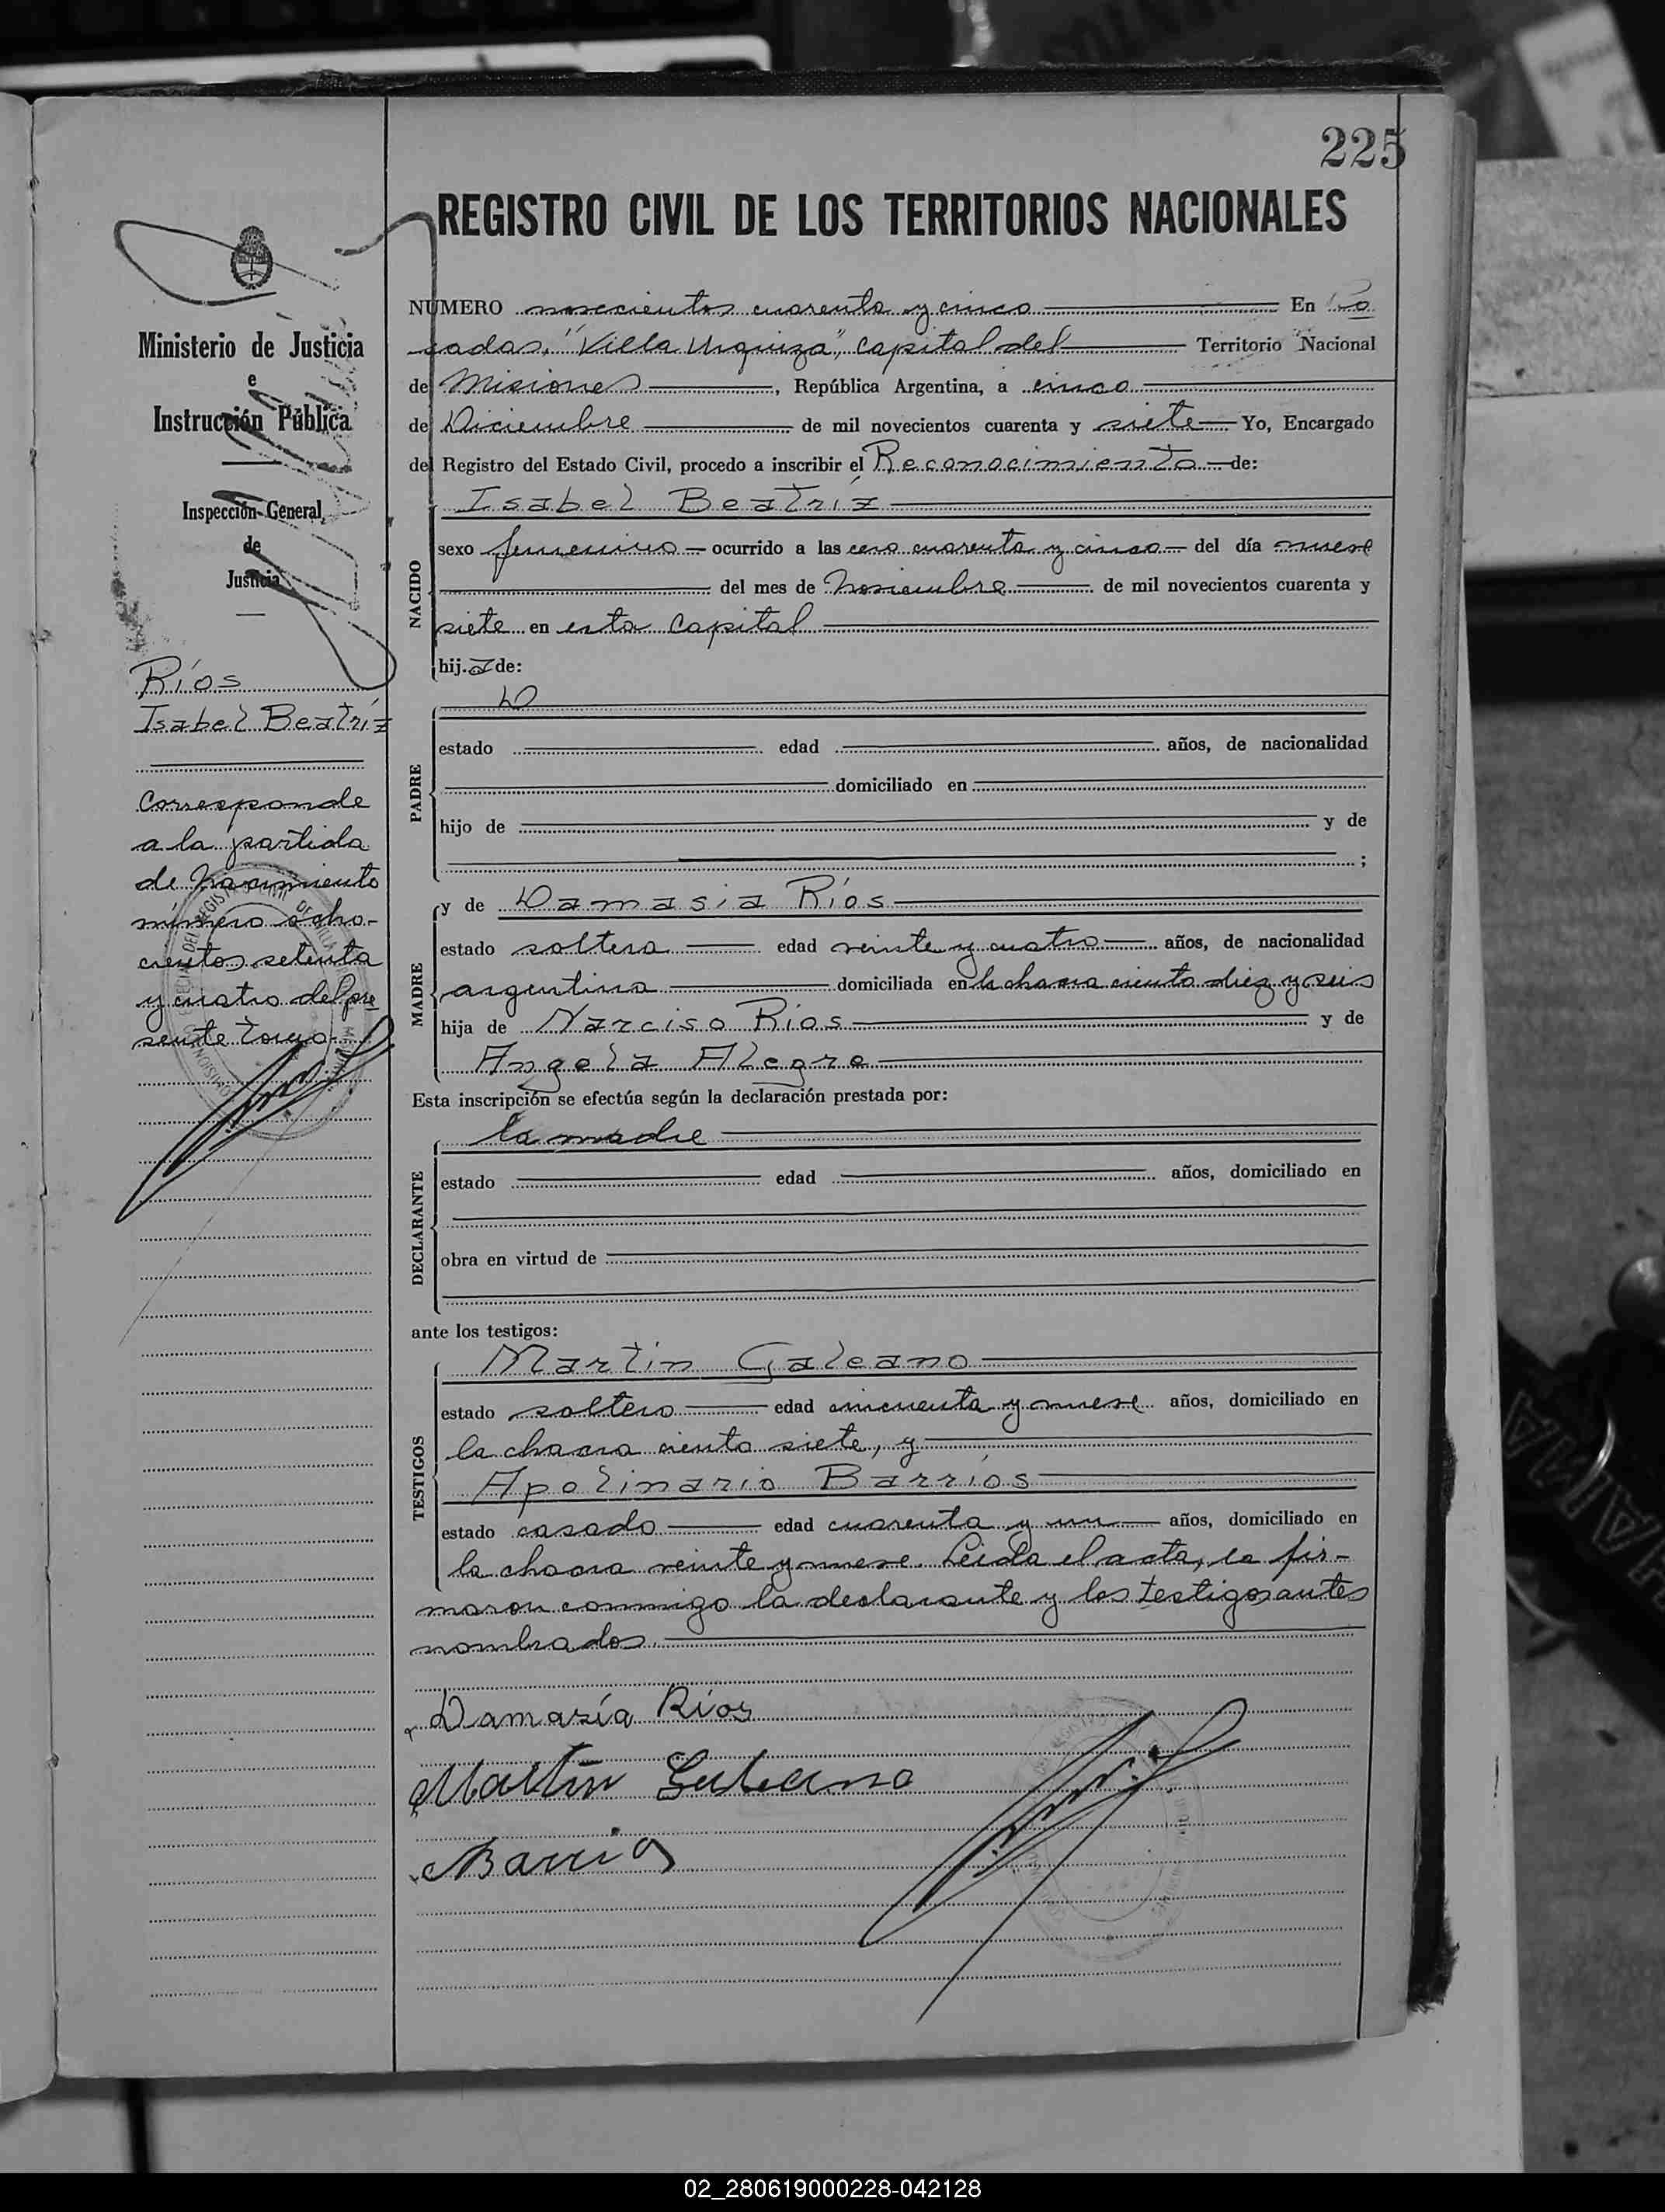 225
REGISTRO CIVIL DE LOS TERRITORIOS NACIONALES
Ministerio de Justicia
e
Instrucción Pública
Inspección General
de
Justicia
Ríos
Isabel Beatríz
Corresponde
a la partida
de Nacimiento
número ocho-
cientos setenta
y cuatro del pre
sente tomo.
NUMERO novecientos cuarenta y cinco En Po
sadas, "Villa Urquiza", Capital del Territorio Nacional
de Misiones, República Argentina, a cinco
de Diciembre de mil novecientos cuarenta y siete Yo, Encargado
del Registro del Estado Civil, procedo a inscribir el Reconocimiento de:
NACIDO
Isabel Beatríz
sexo femenino ocurrido a las cero cuarenta y cinco del día nueve
del mes de Noviembre de mil novecientos cuarenta y
siete en esta Capital
hija de:
PADRE
D
estado edad años, de nacionalidad
domiciliado en
hijo de y de
;
MADRE
y de Damasia Ríos
estado soltera edad veinte y cuatro años, de nacionalidad
argentina domiciliada en la chacra ciento diez y seis
hija de Narciso Rios y de
Angela Alegre
Esta inscripción se efectúa según la declaración prestada por:
DECLARANTE
la madre
estado edad años, domiciliado en
obra en virtud de
ante los testigos:
TESTIGOS
Martin Galeano
estado soltero edad cincuenta y nueve años, domiciliado en
la chacra ciento siete, y
Apolinario Barrios
estado casado edad cuarenta y un años, domiciliado en
la chacra veinte y nueve. Leida el acta, la fir-
maron conmigo la declarante y los testigos antes
nombrados.
Damasía Ríos
Martin Galeano
Barrios
02_280619000228-042128